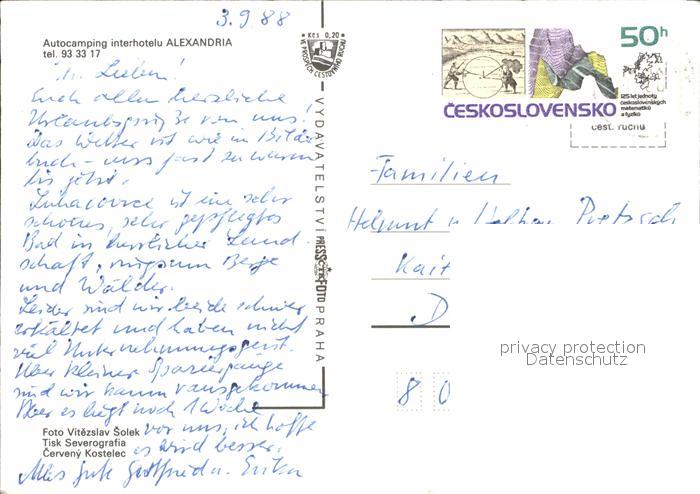 3.9.88
Autocamping interhotelu ALEXANDRIA
tel. 93 33 17
Ihr Lieben!
Euch allen herzliche
Urlaubsgrüße von uns!
Das Wetter ist wie im Bilder
buch - uns fast zu warm
bis jetzt.
Luhacovice ist ein sehr
schönes, sehr gepflegtes
Bad in herrlicher Land-
schaft, ringsum Berge
und Wälder.
Leider sind wir beide schwer
erkältet und haben nicht
viel Unternehmungsgeist.
Über kleiner Spaziergänge
sind wir kaum rausgekommen
Aber es liegt noch 1 Woche
vor uns, ich hoffe
es wird besser.
Alles Gute Gottfried u. Erika
Foto Vítězslav Šolek
Tisk Severografia
Červený Kostelec
Kčs 0,20
VE PROSPĚCH CESTOVNÍHO RUCHU
VYDAVATELSTVÍ PRESSFOTO PRAHA
50h
ČESKOSLOVENSKO
125 let jednoty
československých
matematiků
a fyziků
cest. ruchu
Familien
Helmut u
D
8 0
privacy protection
Datenschutz